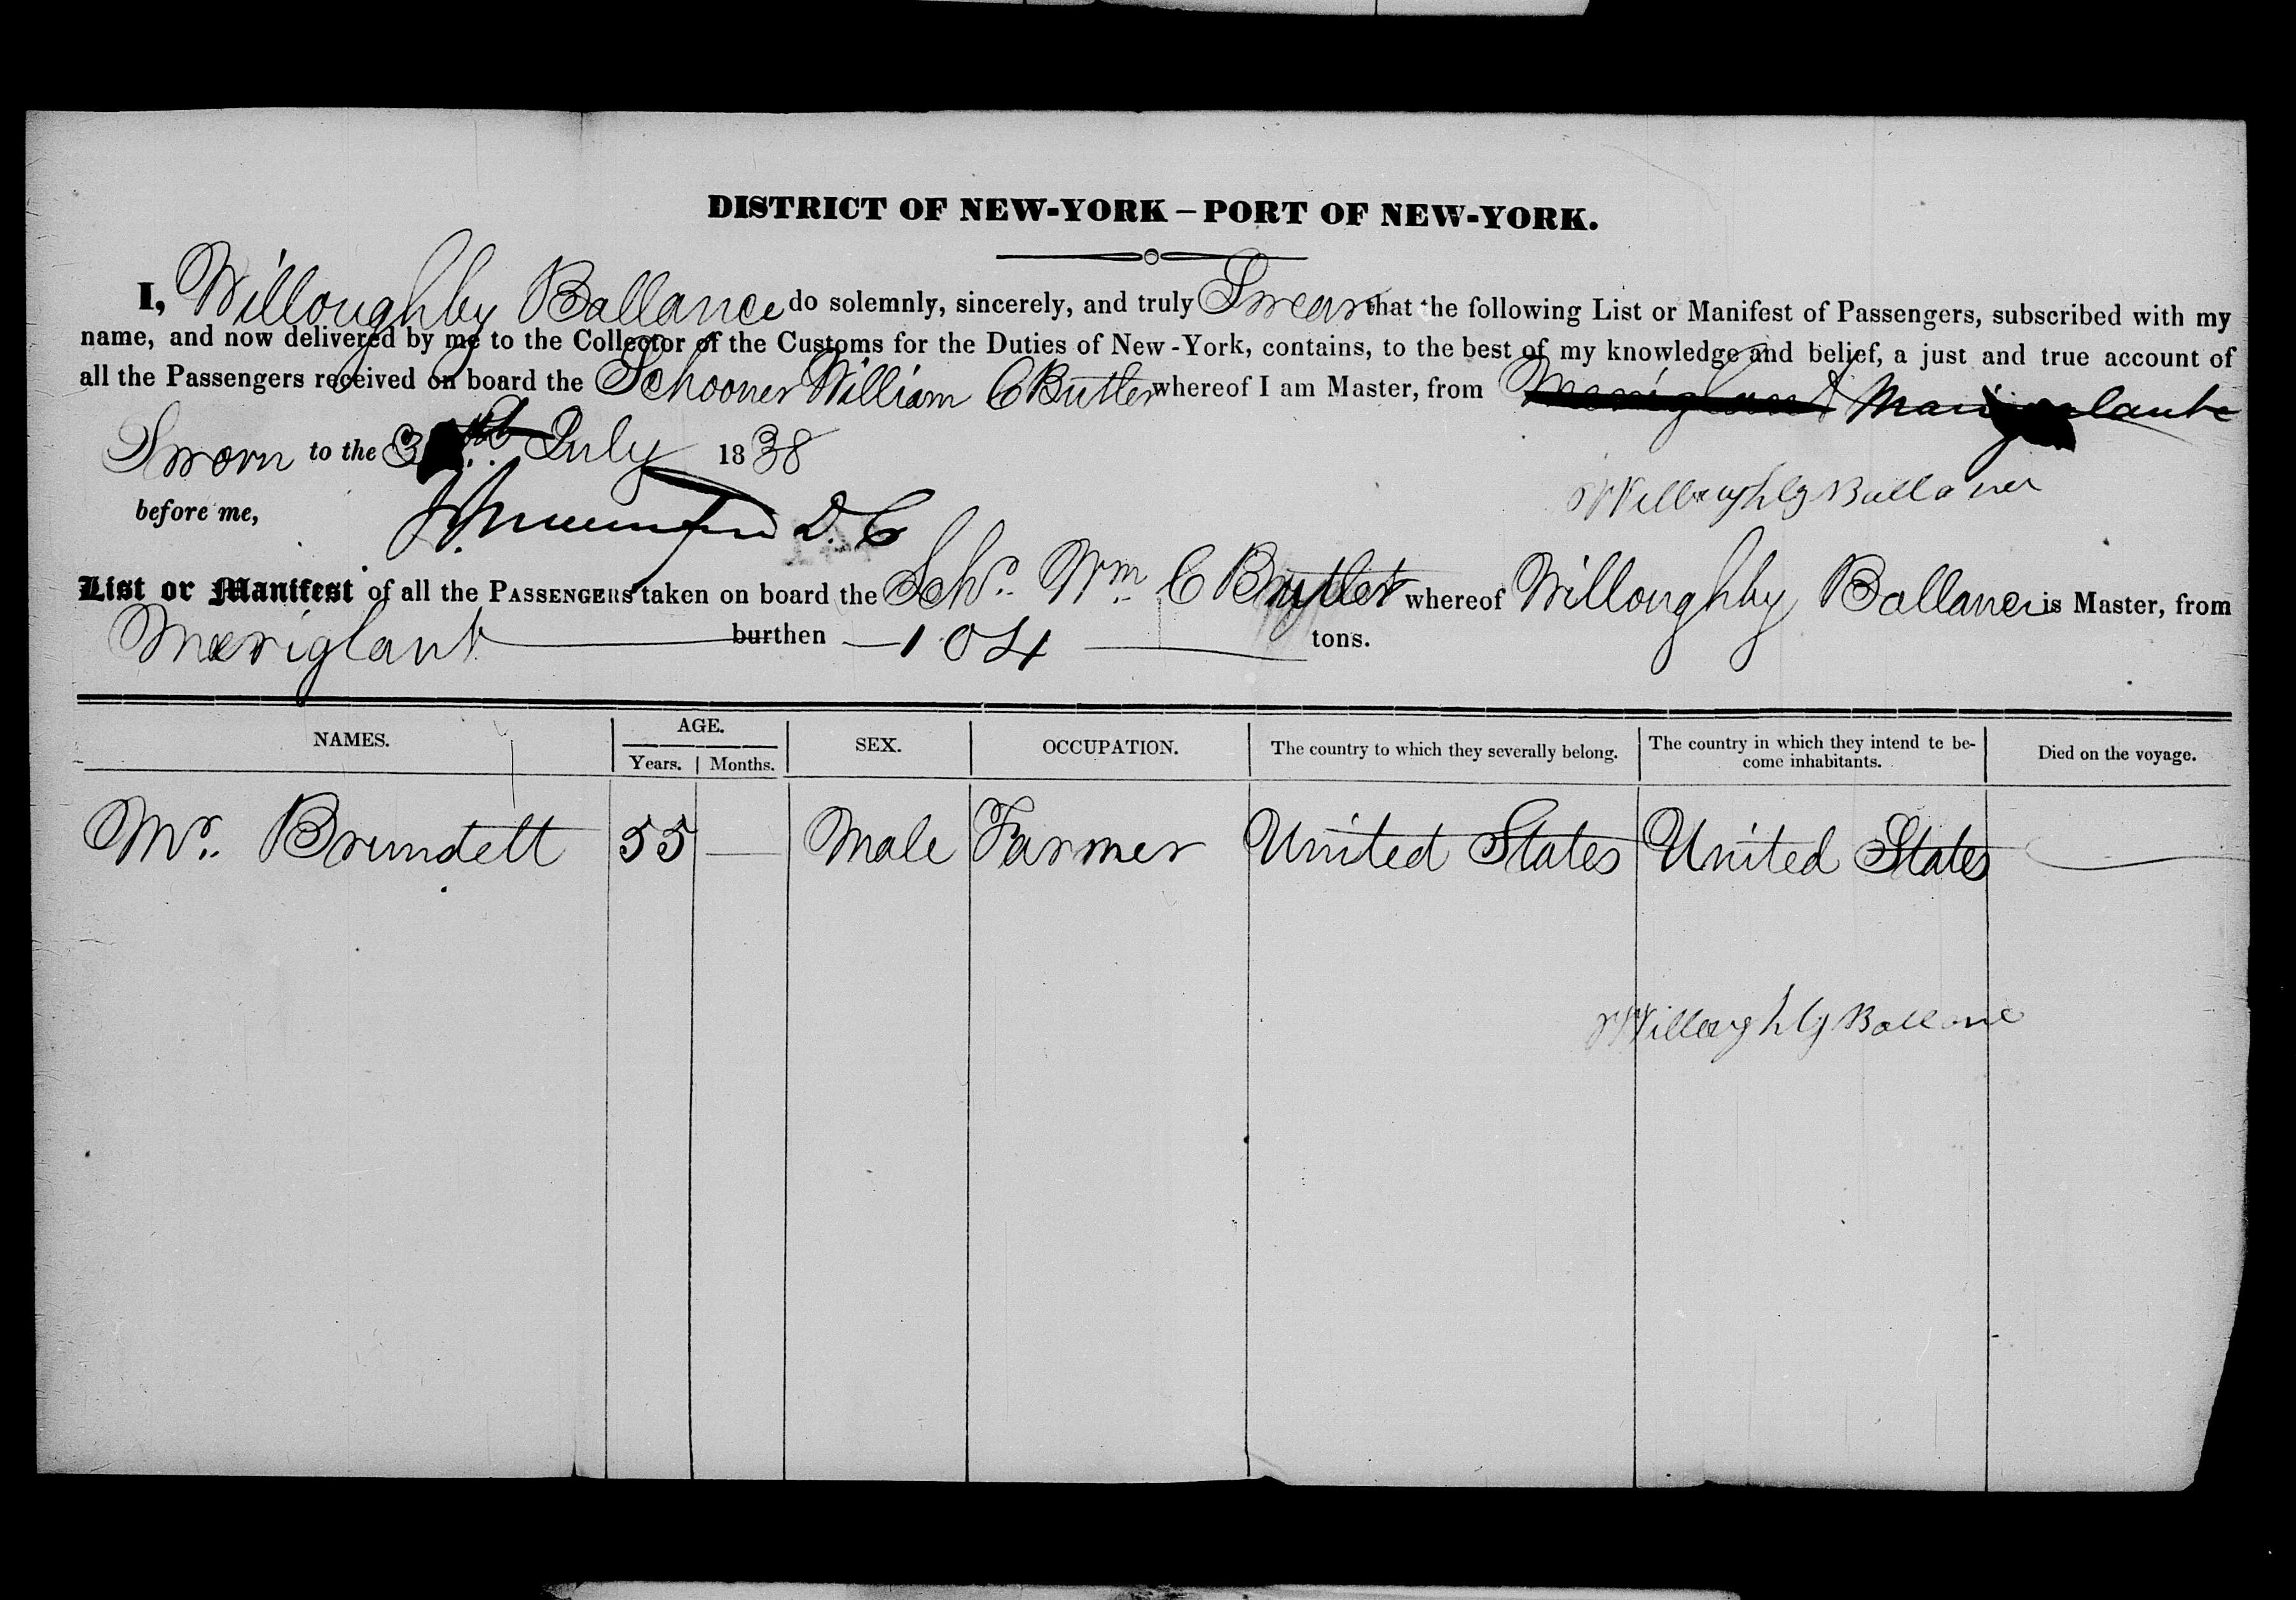 DISTRICT OF NEW-YORK – PORT OF NEW-YORK.
I, Willoughby Ballance do solemnly, sincerely, and truly Swear that the following List or Manifest of Passengers, subscribed with my
name, and now delivered by me to the Collector of the Customs for the Duties of New-York, contains, to the best of my knowledge and belief, a just and true account of
all the Passengers received on board the Schooner William C Butler whereof I am Master, from
Sworn to the July 1838
Willoughby Ballance
before me, D. C
List or Manifest of all the PASSENGERS taken on board the Schr. Wm. C Butler whereof Willoughby Ballance is Master, from
Meriglant burthen 104 tons.
NAMES. AGE. SEX. OCCUPATION. The country to which they severally belong. The country in which they intend te be-
come inhabitants. Died on the voyage.
Years. Months.
Mr. Brundett 55 — Male Farmer United States United States —
Willoughby Ballance